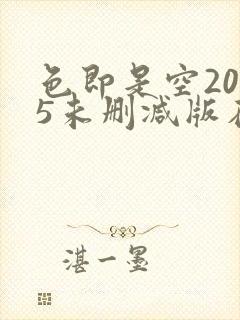 色即是空20
5未删减版在
湛一墨